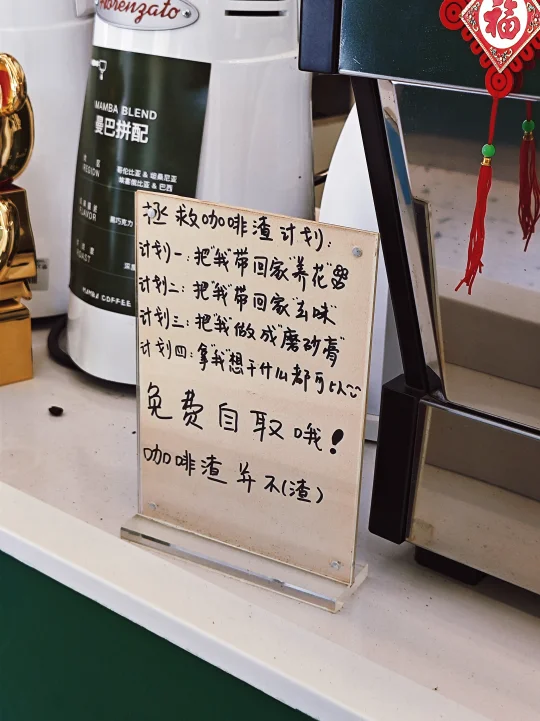 Fiorenzato
MAMBA BLEND
曼巴拼配
REGION
哥伦比亚 & 坦桑尼亚
埃塞俄比亚 & 巴西
FLAVOR
黑巧克力
ROAST
MAMBA COFFEE
福
拯救咖啡渣计划:
计划一:把"我"带回家"养花"
计划二:把"我"带回家"去味"
计划三:把"我"做成"磨砂膏"
计划四:拿"我"想干什么都可以
免费自取哦!
咖啡渣并不(渣)